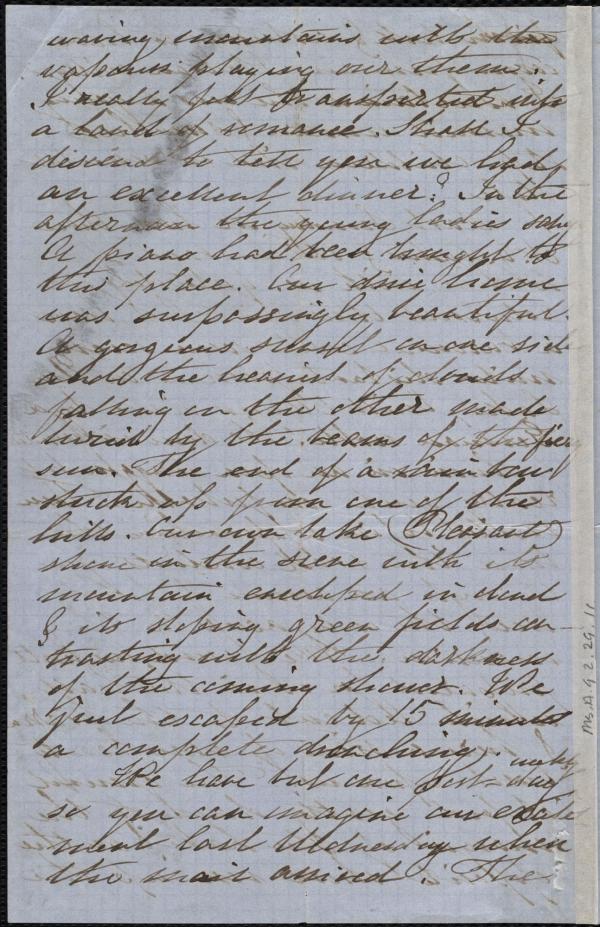 waving mountains with the
vapours playing over them.
I really felt transported into
a land of romance. Shall I
descend to tell you we had
an excellent dinner? In the
afternoon the young ladies sang
A piano had been brought to
the place. Our drive home
was surpassingly beautiful.
A gorgeous sunset on one side
and the heaviest of clouds
falling on the other made
lurid by the beams of the fiery
sun. The end of a rainbow
stuck up from one of the
hills. Our own lake (Pleasant)
shone in the scene with its
mountain enveloped in cloud
& its sloping green fields con-
trasting with the darkness
of the coming shower. We
just escaped by 15 minutes
a complete drenching.
We have but one post-day weekly
so you can imagine our excite
ment last Wednesday when
the mail arrived. The
Ms.A.9.2.29.11